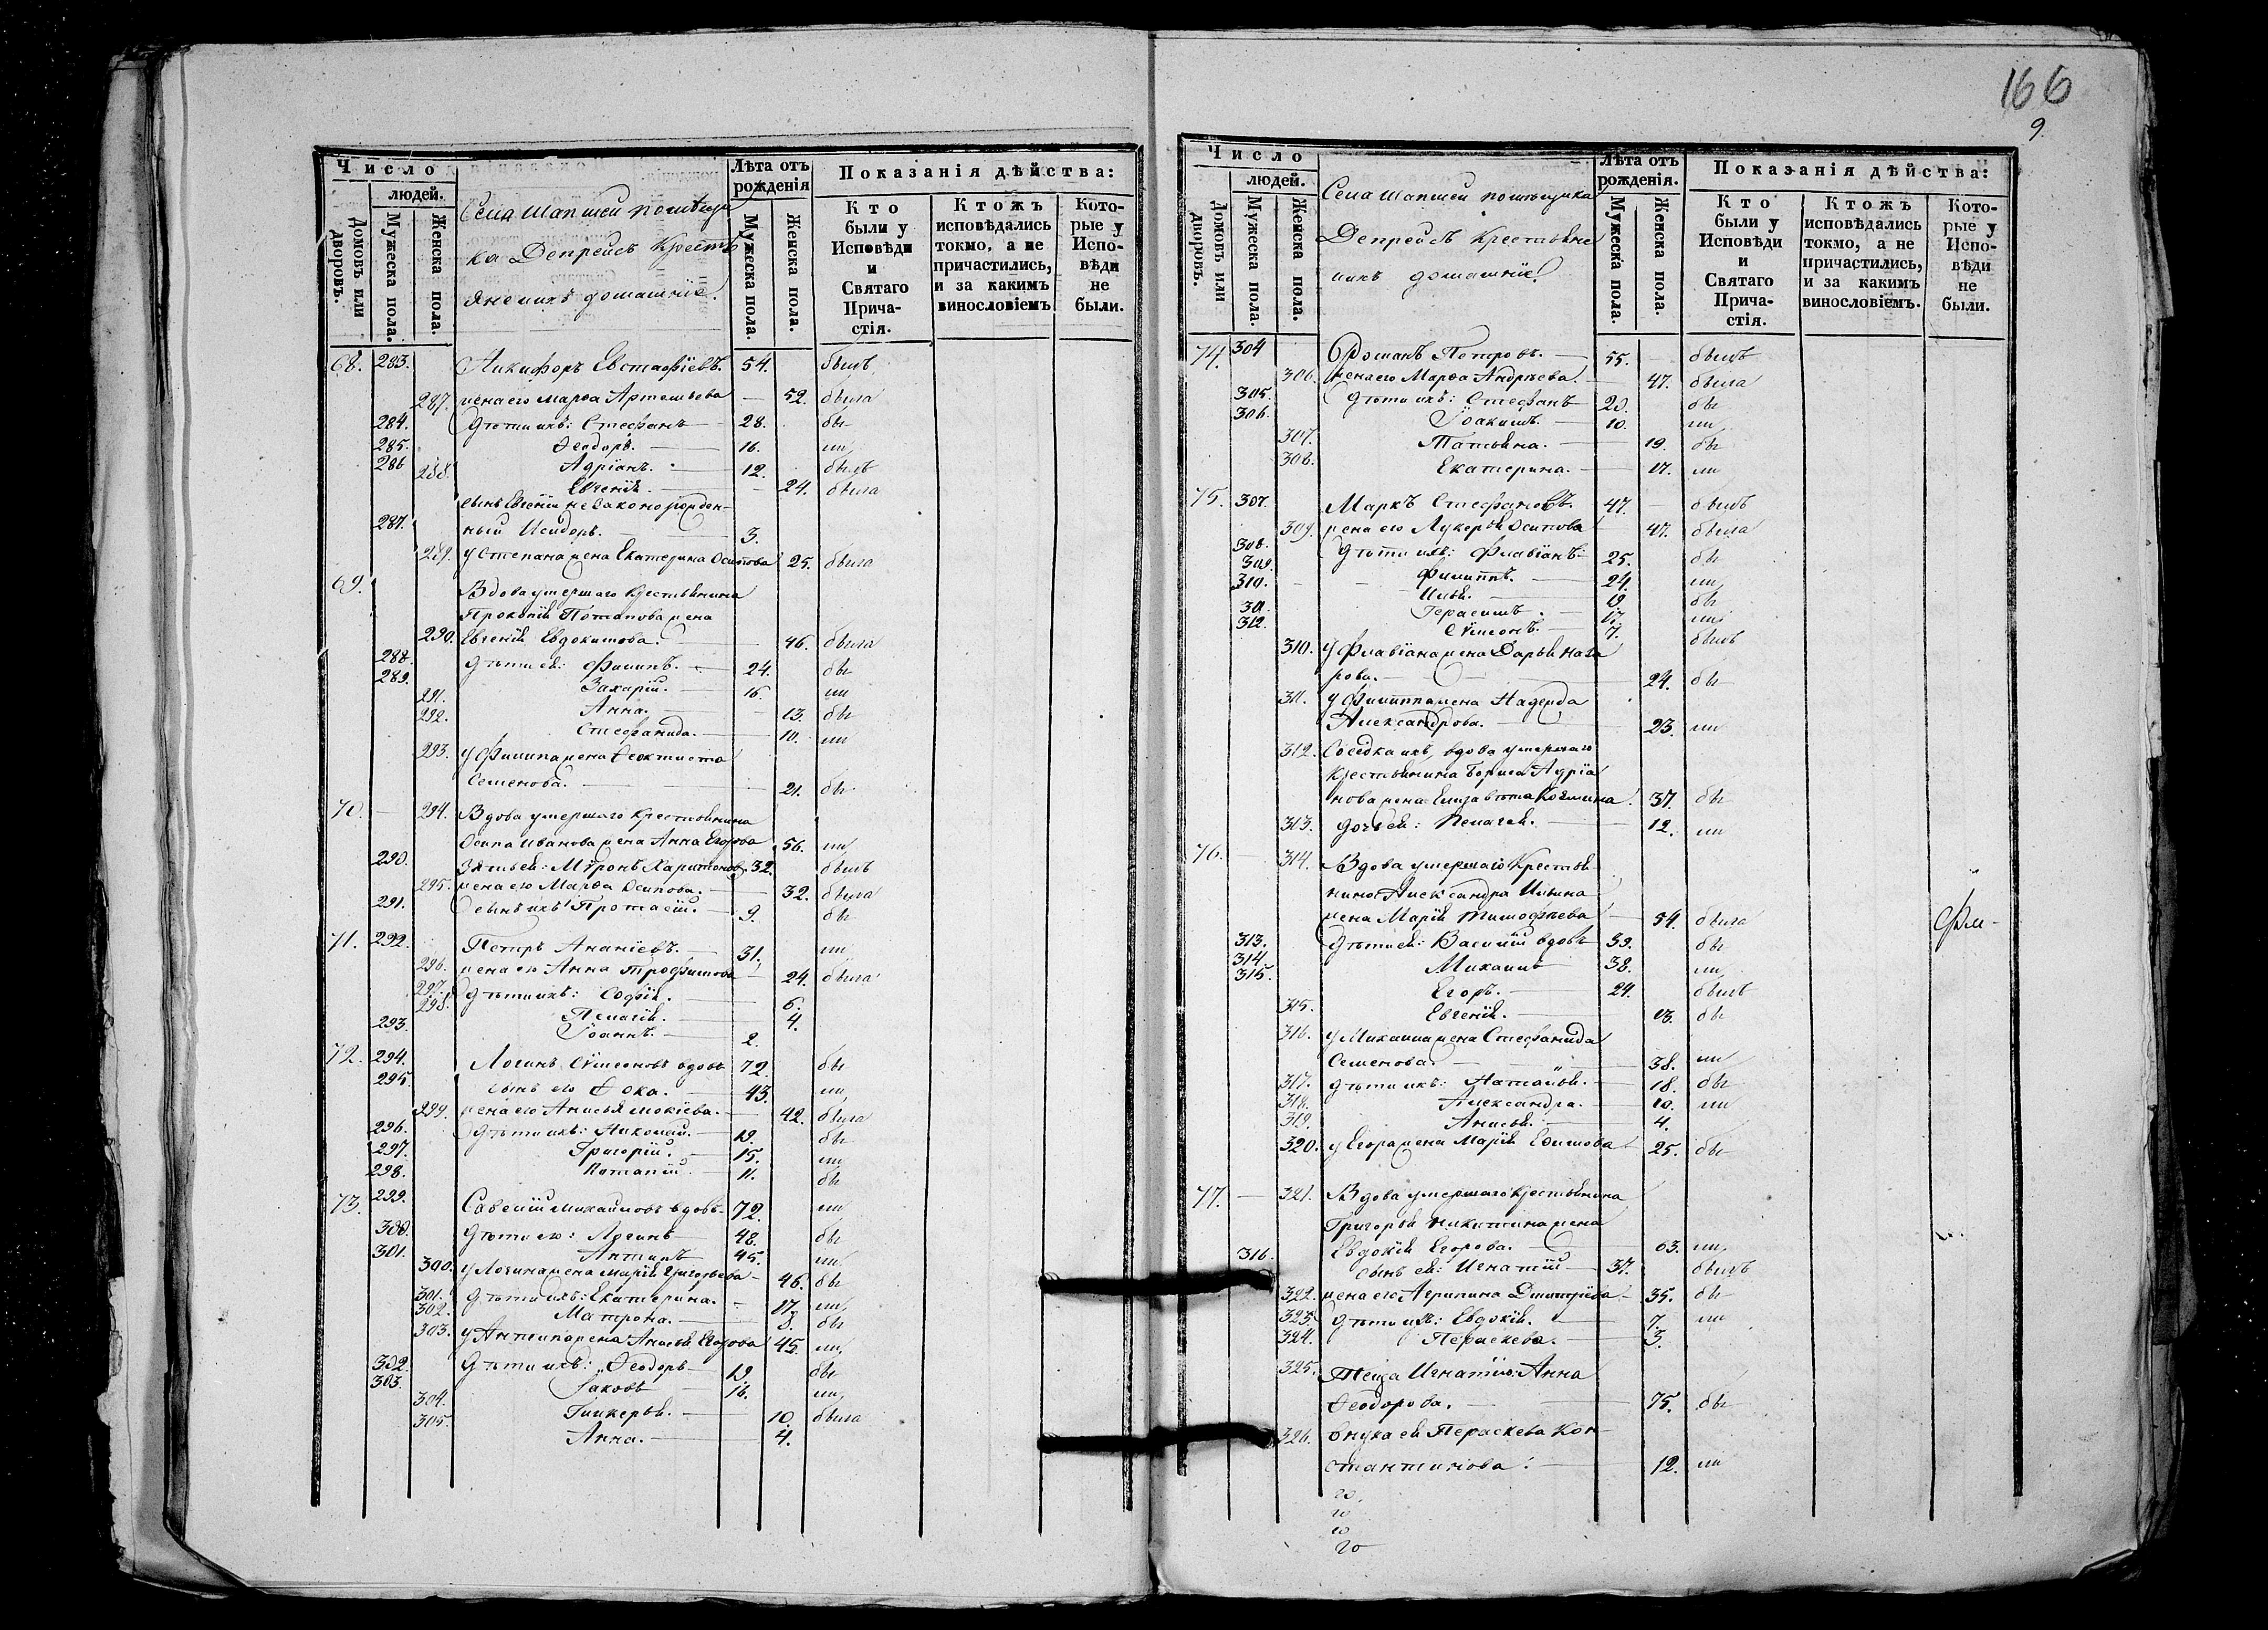 166
9.
Число
людей.
Домовъ или дворовъ.
Мужеска пола.
Женска пола.
Села Шапшей помѣщи
ка Депрейсъ Кресть
яне и ихъ домашніе.
Лѣта отъ рожденія
Мужеска пола.
Женска пола.
Показанія дѣйства:
Кто были у Исповѣди и Святаго Причастія.
Ктожъ исповѣдались токмо, а не причастились, и за какимъ винословіемъ
Которые у Исповѣди не были.
68. 283. Никифоръ Евстафіевъ. 54. былъ
287. жена его Марѳа Артемьева 52. была
284. Дѣти ихъ: Стефанъ 28. бы
285. Ѳеодоръ. 16. ли
286 Адріанъ. 12. былъ
288. Евгенія. 24. была
сынъ Евгеніи незаконорожден-
287. ный Исидоръ. 3.
289. у Степана жена Екатерина Осипова 25. была
69. Вдова умершаго крестьянина
Прокопія Потапова жена
290. Евгенія Евдокимова. 46. была
288. Дѣти ея: Филипъ. 24. бы
289. Захарій. 16. ли
291. Анна. 13. бы
292. Стефанида. 10. ли
293. у Филипа жена Ѳеоктиста
Семенова. 21. бы
70. 294. Вдова умершаго крестьянина
Осипа Иванова жена Анна Егорова 56. ли
290. Зять ея: Мѵронъ Харитоновъ 32. былъ
295. жена его Марѳа Осипова. 32. была
291. сынъ ихъ Протасій. 9. бы
71. 292. Петръ Ананіевъ. 31. ли
296. жена его Анна Трофимова 24. была
297. Дѣти ихъ: Софія. 6.
298. Пелагія. 4.
293. Іоаннъ. 2.
72. 294. Логинъ Сѵмеоновъ вдовъ 72. бы
295. сынъ его Ѳока. 43. ли
299. жена его Анисья Мокіева. 42. была
296. Дѣти ихъ: Николай. 19. бы
297. Григорій. 15. ли
298. Потапій. 11. бы
73. 299. Савелій Михайловъ вдовъ. 72. ли
300. Дѣти его: Логинъ 48. бы
301. Антипъ 45. ли
300. у Логина жена Марія Григорьева 46. бы
301. Дѣти ихъ: Екатерина. 17. ли
302. Матрона. 8. бы
303. у Антипа жена Анисья Егорова 45. ли
302. Дѣти ихъ: Ѳеодоръ 19. бы
303. Іаковъ 16. ли
304. Гликерья. 10. была
305. Анна. 4.
Число
людей.
Домовъ или дворовъ.
Мужеска пола.
Женска пола.
Села Шапшей помѣщика
Депрейсъ Крестьяне
и ихъ домашніе.
Лѣта отъ рожденія.
Мужеска пола.
Женска пола.
Показанія дѣйства:
Кто были у Исповѣди и Святаго Причастія.
Ктожъ исповѣдались токмо, а не причастились, и за какимъ винословіемъ.
Которые у Исповѣди не были.
74. 304 Романъ Петровъ. 55. былъ
306. жена его Марѳа Андреева. 47. была
305. Дѣти ихъ: Стефанъ 20. бы
306. Іоакимъ. 10. ли
307. Татьяна. 19. бы
308. Екатерина. 17. ли
75. 307. Маркъ Стефановъ. 47. былъ
309. жена его Лукерья Осипова 47. была
308. Дѣти ихъ: Флавіанъ 25. бы
309. Филиппъ. 24. ли
310. Илья. 19. бы
311. Герасимъ. 17. ли
312. Сѵмеонъ. 7. былъ
310. у Флавіана жена Дарья Наза
рова. 24. бы
311. у Филиппа жена Надежда
Александрова. 23. ли
312. Соседка ихъ, вдова умершаго
крестьянина Бориса Адріа
нова жена Елизавета Козмина. 37. бы
313. дочь ея: Пелагея. 12. ли
76. 314. Вдова умершаго Крестья
нина Александра Ильина
жена Марія Тимофѣева 54. была
313. Дѣти ея: Василій вдовъ 39. бы
314 Михаилъ 38. ли
315. Егоръ. 24. былъ
315. Евгенія. 13. бы
316. у Михаила жена Стефанида
Семенова. 38. ли
317. Дѣти ихъ: Наталья. 18. бы
318. Александра. 10. ли
319. Анисья. 4.
320. у Егора жена Марія Ефимова 25. бы
77. 321. Вдова умершаго крестьянина
Григорья Никитина жена
Евдокія Егорова. 63. ли
316. сынъ ея: Игнатій 37. былъ
322. жена его Агрипина Дмитріева 35. бы
323. Дѣти ихъ: Евдокія. 7. ли
324. Параскева. 3.
325. Теща Игнатія: Анна
Ѳеодорова. 75. бы
326. внука ея Параскева Кон-
стантинова. 12. ли